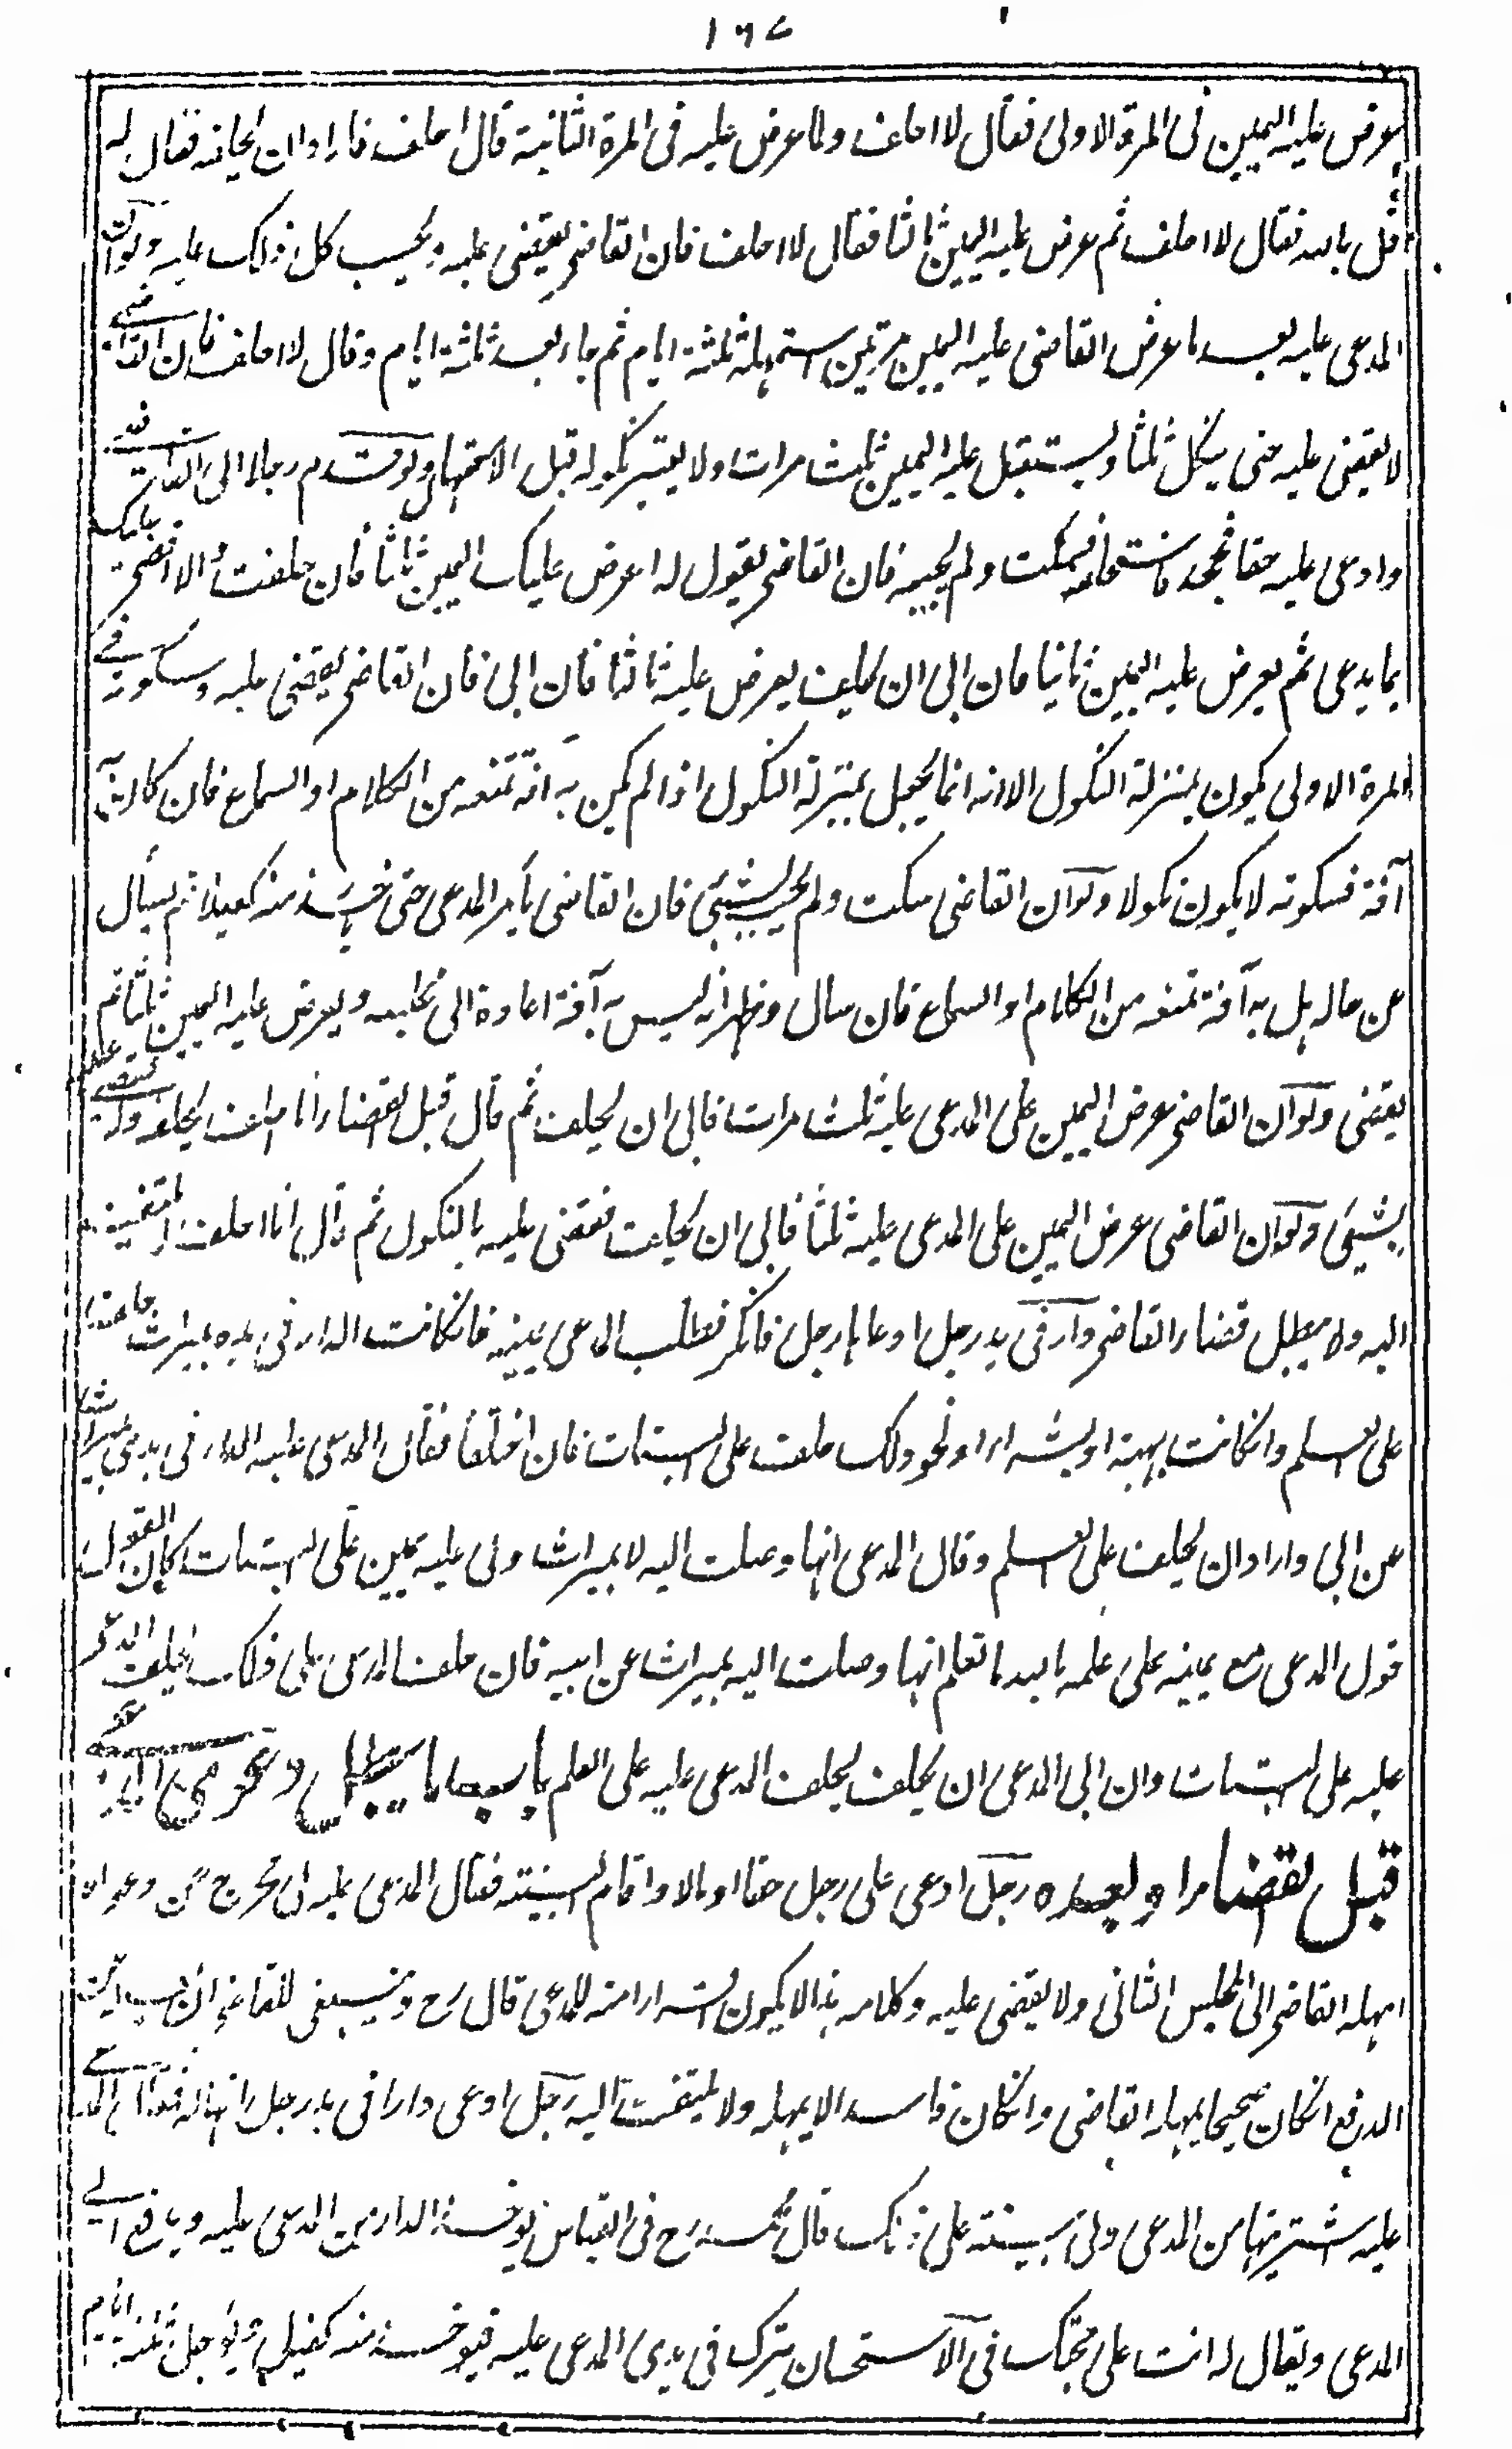 ١٦٧
يعرض عليه اليمين فى المرة الاولى فقال لا احلف ولما عرض عليه فى المرة الثانية قال احلف فاراد ان يحلفه فقال له
قل بالله فقال لا احلف ثم عرض عليه اليمين ثالثا فقال لا احلف فان القاضى يقضى عليه ويحسب كل ذلك عليه ولو ان
المدعى عليه بعد ما عرض القاضى عليه اليمين مرتين استمهله ثلثة ايام ثم جاء بعد ثلثة ايام وقال لا احلف فان القاضى
لا يقضى عليه حتى ينكل ثلثا ويستقبل عليه اليمين ثلث مرات ولا يعتبر نكوله قبل الاستمهال ولو قدم رجلا الى القاضى
وادعى عليه حقا فجحد فاستحلفه فسكت ولم يجبه فان القاضى يقول له اعرض عليك اليمين ثلثا فان حلفت والا اقضى عليك
بما يدعى ثم يعرض عليه اليمين ثانيا فان ابى ان يحلف يعرض عليه ثالثا فان ابى فان القاضى يقضى عليه وسكوته فى
المرة الاولى يكون بمنزلة النكول الا انه انما يجعل بمنزلة النكول اذا لم يكن به آفة تمنعه من الكلام او السماع فان كان به
آفة فسكوته لا يكون نكولا ولو ان القاضى سكت ولم يجب بشيئ فان القاضى يأمر المدعى حتى يأخذ منه كفيلا ثم يسأل
عن حاله هل به آفة تمنعه من الكلام او السماع فان سال وظهر انه ليس به آفة اعاده الى مجلسه ويعرض عليه اليمين ثلثا ثم
يقضى ولو ان القاضى عرض اليمين على المدعى عليه ثلث مرات فابى ان يحلف ثم قال قبل القضاء انا احلف يحلفه ولا يقضى عليه
بشيئ ولو ان القاضى عرض اليمين على المدعى عليه ثلثا فابى ان يحلف فقضى عليه بالنكول ثم قال انا احلف لا يلتفت
اليه ولا يبطل قضاء القاضى دار فى يد رجل ادعاها رجل فانكر فطلب المدعى يمينه فان كانت الدار فى يده بميراث حلف
على العلم وان كانت بهبة او بشراء او نحو ذلك حلف على البتات فان اختلفا فقال المدعى عليه الدار فى يدى ميراثا
عن ابى واراد ان يحلف على العلم وقال المدعى انها وصلت اليه لا بميراث ولى عليه يمين على البتات كان القول
قول المدعى مع يمينه على علمه بالله ما تعلم انها وصلت اليه بميراث عن ابيه فان حلف المدعى على ذلك يحلف المدعى
عليه على البتات وان ابى المدعى ان يحلف يحلف المدعى عليه على العلم باب ما يبطل دعوى المدعى
قبل القضاء او بعده رجل ادعى على رجل حقا او مالا واقام البينة فقال المدعى عليه لى مخرج من دعواه
امهله القاضى الى المجلس الثانى ولا يقضى عليه وكلامه هذا لا يكون اقرارا منه للمدعى قال رح وينبغى للقاضى ان يسأله عن
الدفع ان كان صحيحا يمهله القاضى وان كان فاسدا لا يمهله ولا يلتفت اليه رجل ادعى دارا فى يد رجل انها له فقال المدعى
عليه اشتريتها من المدعى ولى بينة على ذلك قال محمد رح فى القياس يؤخذ الدار من المدعى عليه ويدفع الى
المدعى ويقال له انت على حجتك فى الاستحسان يترك فى يدى المدعى عليه فيؤخذ منه كفيل ويؤجل ثلثة ايام